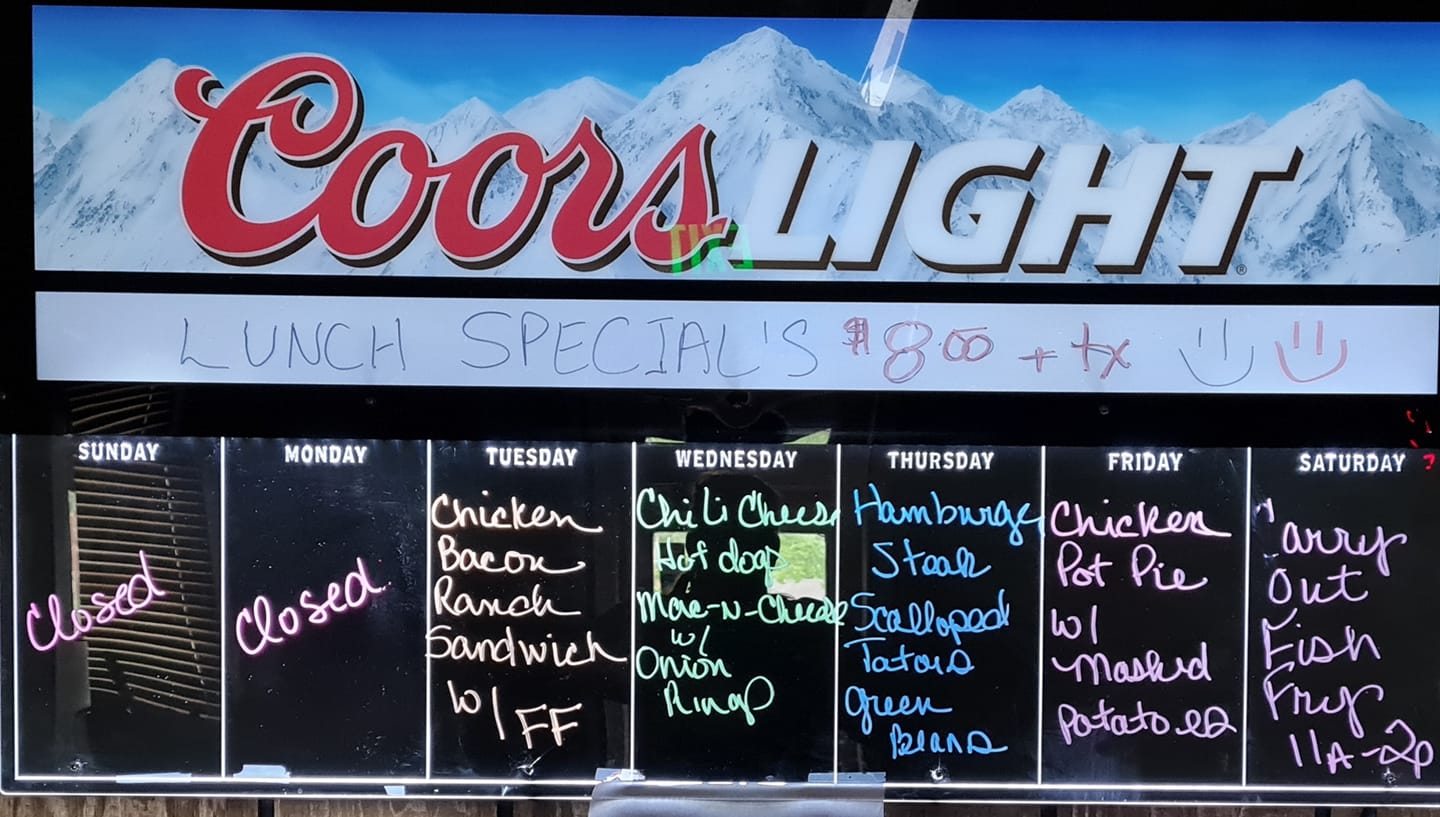 Coors LIGHT®
LUNCH SPECIAL'S $8.00 + tx
SUNDAY
Closed
MONDAY
Closed
TUESDAY
Chicken
Bacon
Ranch
Sandwich
w/ FF
WEDNESDAY
Chili Cheese
Hot dogs
Mac-N-Cheese
w/
Onion
Rings
THURSDAY
Hamburger
Steak
Scalloped
Tators
green
Beans
FRIDAY
Chicken
Pot Pie
w/
Mashed
Potatoes
SATURDAY
Carry
Out
Fish
Fry
11A-2p
EXIT